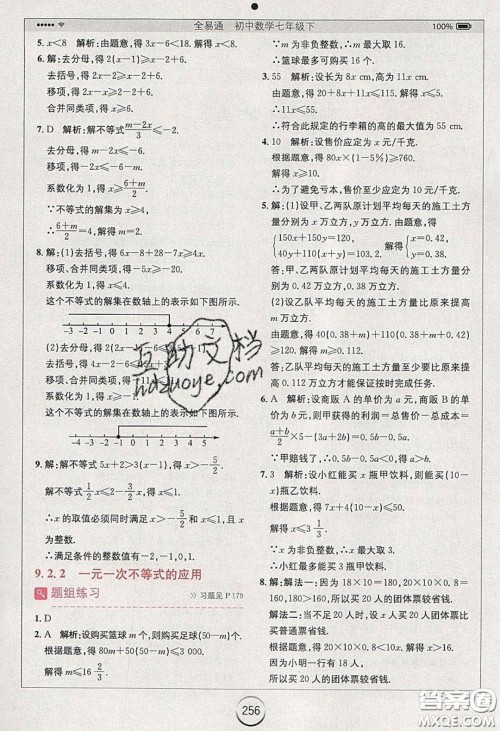 全易通 初中数学七年级下
100%
5. x<8 解析:由题意,得 3x-6<18. 解得 x<8.
去分母,得 x-2≥2(x-2).
去括号,得 x-2≥2x-4.
移项,得 x-2x≥2-4.
合并同类项,得-x≥-2.
7. D 解析:解不等式(m-2x)/3≤-2.
去分母,得 m-2x≤-6.
移项,得-2x≤-m-6.
系数化为 1,得 x≥(6+m)/2.
∵不等式的解集为 x≥4,
∴(6+m)/2=4. 解得 m=2.
8. 解:(1)去括号,得 6x-8+28-7x≥5x-4.
移项、合并同类项,得-6x≥-24.
系数化为 1,得 x≤4.
这个不等式的解集在数轴上的表示如下图所示.
-4 -3 -2 -1 0 1 2 3 4 5 6
系数化为 1,得 x≥-1.
这个不等式的解集在数轴上的表示如下图所示.
-5 -4 -3 -2 -1 0 1 2 3 4 5
9. 解:解不等式 5x+2>3(x-1),得 x>-5/2.
∴x 的取值必须同时满足 x>-5/2 和 x≤
∴满足条件的整数值有-2,-1,0,1.
9.2.2 一元一次不等式的应用
题组练习
>习题见 P179
1. D
2. A 解析:设购买篮球 m 个,则购买足球(50-m)个.
根据题意,得 80m+50(50-m)≤3 000.
解得 m≤16 2/3.
∵m 为非负整数,∴m 最大取 16.
∴篮球最多可购买 16 个.
3. 55 解析:设长为 8x cm,高为 11x cm.
由题意,得 20+8x+11x≤115. 解得 x≤5.
∴11x≤55.
∴符合此规定的行李箱的高的最大值为 55 cm.
4. 10 解析:设售价应定为 x 元/千克.
根据题意,得 80x(1-5%)≥760.
解得 x≥10.
∴为了避免亏本,售价至少应定为 10 元/千克.
5. 解:(1)设甲、乙两队原计划平均每天的施工土方量分别为 x 万立方、y 万立方. 由题意,得
{150x+150y=120, 40y+110(x+y)=103.2. 解得 {x=0.42, y=0.38.
答:甲、乙两队原计划平均每天的施工土方量分别为 0.42 万立方、0.38 万立方.
(2)设乙队平均每天的施工土方量比原来提高 m 万立方.
由题意,得 40(0.38+m)+110(0.38+m+0.42)≥120. 解得 m≥0.112.
答:乙队平均每天的施工土方量至少要比原来提高 0.112 万立方才能保证按时完成任务.
6. A 解析:设商版 A 的单价为 a 元,商版 B 的单价为 b 元,则甲获得的利润=总售价-总成本=(a+b)/2×5-(3a+2b)=0.5b-0.5a.
∵甲赔钱了,∴0.5b-0.5a<0. ∴a>b.
7. 3 解析:设小红能买 x 瓶甲饮料,则能买(10-x)瓶乙饮料.
根据题意,得 7x+4(10-x)≤50.
解得 x≤3 1/3.
∵x 为非负整数,∴x 最大取 3.
∴小红最多能买 3 瓶甲饮料.
因为 360>350,所以买 20 人的团体票较省钱.
解法二:当不足 20 人时,设有 x 人买团体票比买普通票省钱.
因为小明一行有 18 人,
所以买 20 人的团体票较省钱.
互助文档
hdzuoye.com
256
答案圈
MXQE.COM